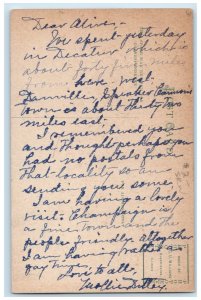 Dear Alice,-
We spent yesterday
in Decatur which is
about forty five miles
from here west.
Danville, Speaker Cannons
town is about thirty two
miles east.
I remembered you
and thought perhaps you
had no postals from
that locality so am
sending you some.
I am having a lovely
visit. Champaign is
a fine town and the
people friendly. Altogether
I am having rather a
gay time.
Love to all,
Mollie